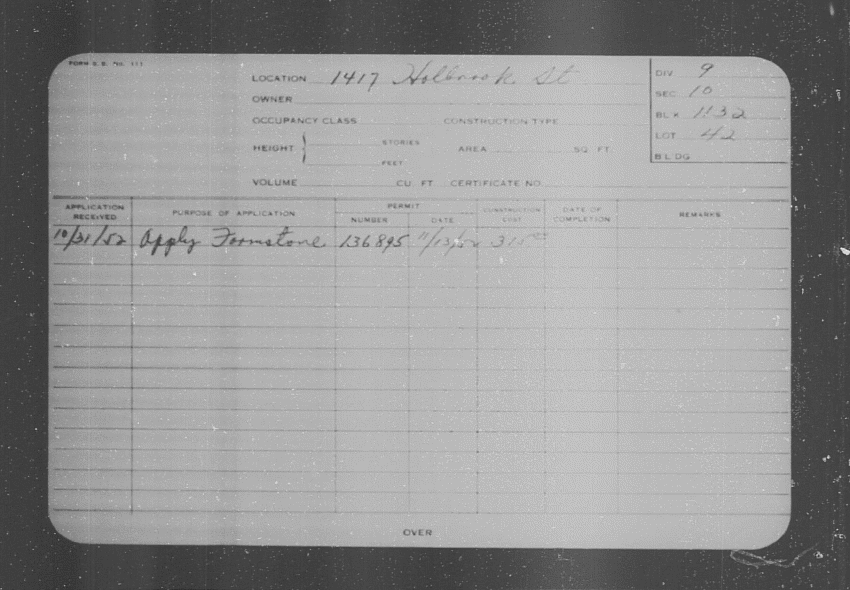 FORM B. B. No. 113
LOCATION 1417 Holbrook St
OWNER
OCCUPANCY CLASS CONSTRUCTION TYPE
HEIGHT STORIES FEET AREA SQ. FT.
VOLUME CU FT CERTIFICATE NO.
DIV 9
SEC 10
BLK 1132
LOT 42
BLDG
APPLICATION RECEIVED PURPOSE OF APPLICATION PERMIT NUMBER DATE CONSTRUCTION COST DATE OF COMPLETION REMARKS
10/31/52 Apply Formstone 136895 11/13/52
OVER